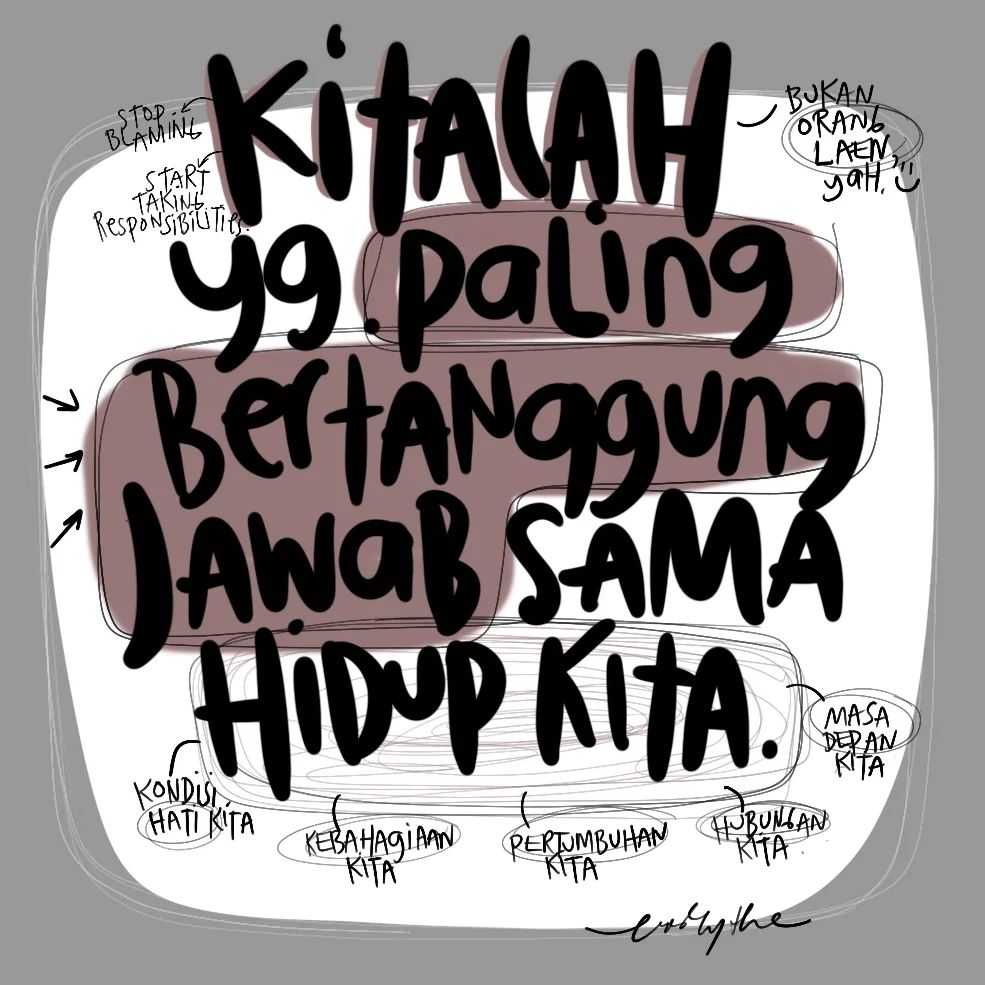 KitALAH
STOP
BLAMING
START
TAKING
RESPONSIBILITIES.
BUKAN
ORANG
LAEN,
yaH.
yg paling
BertANggung
JAWaB SAMA
HiDuP KitA.
MASA
DEPAN
KITA
KONDISI
HATI KITA
KEBAHAgiAAN
KITA
PERTUMBUHAN
KITA
HUBUNGAN
KITA